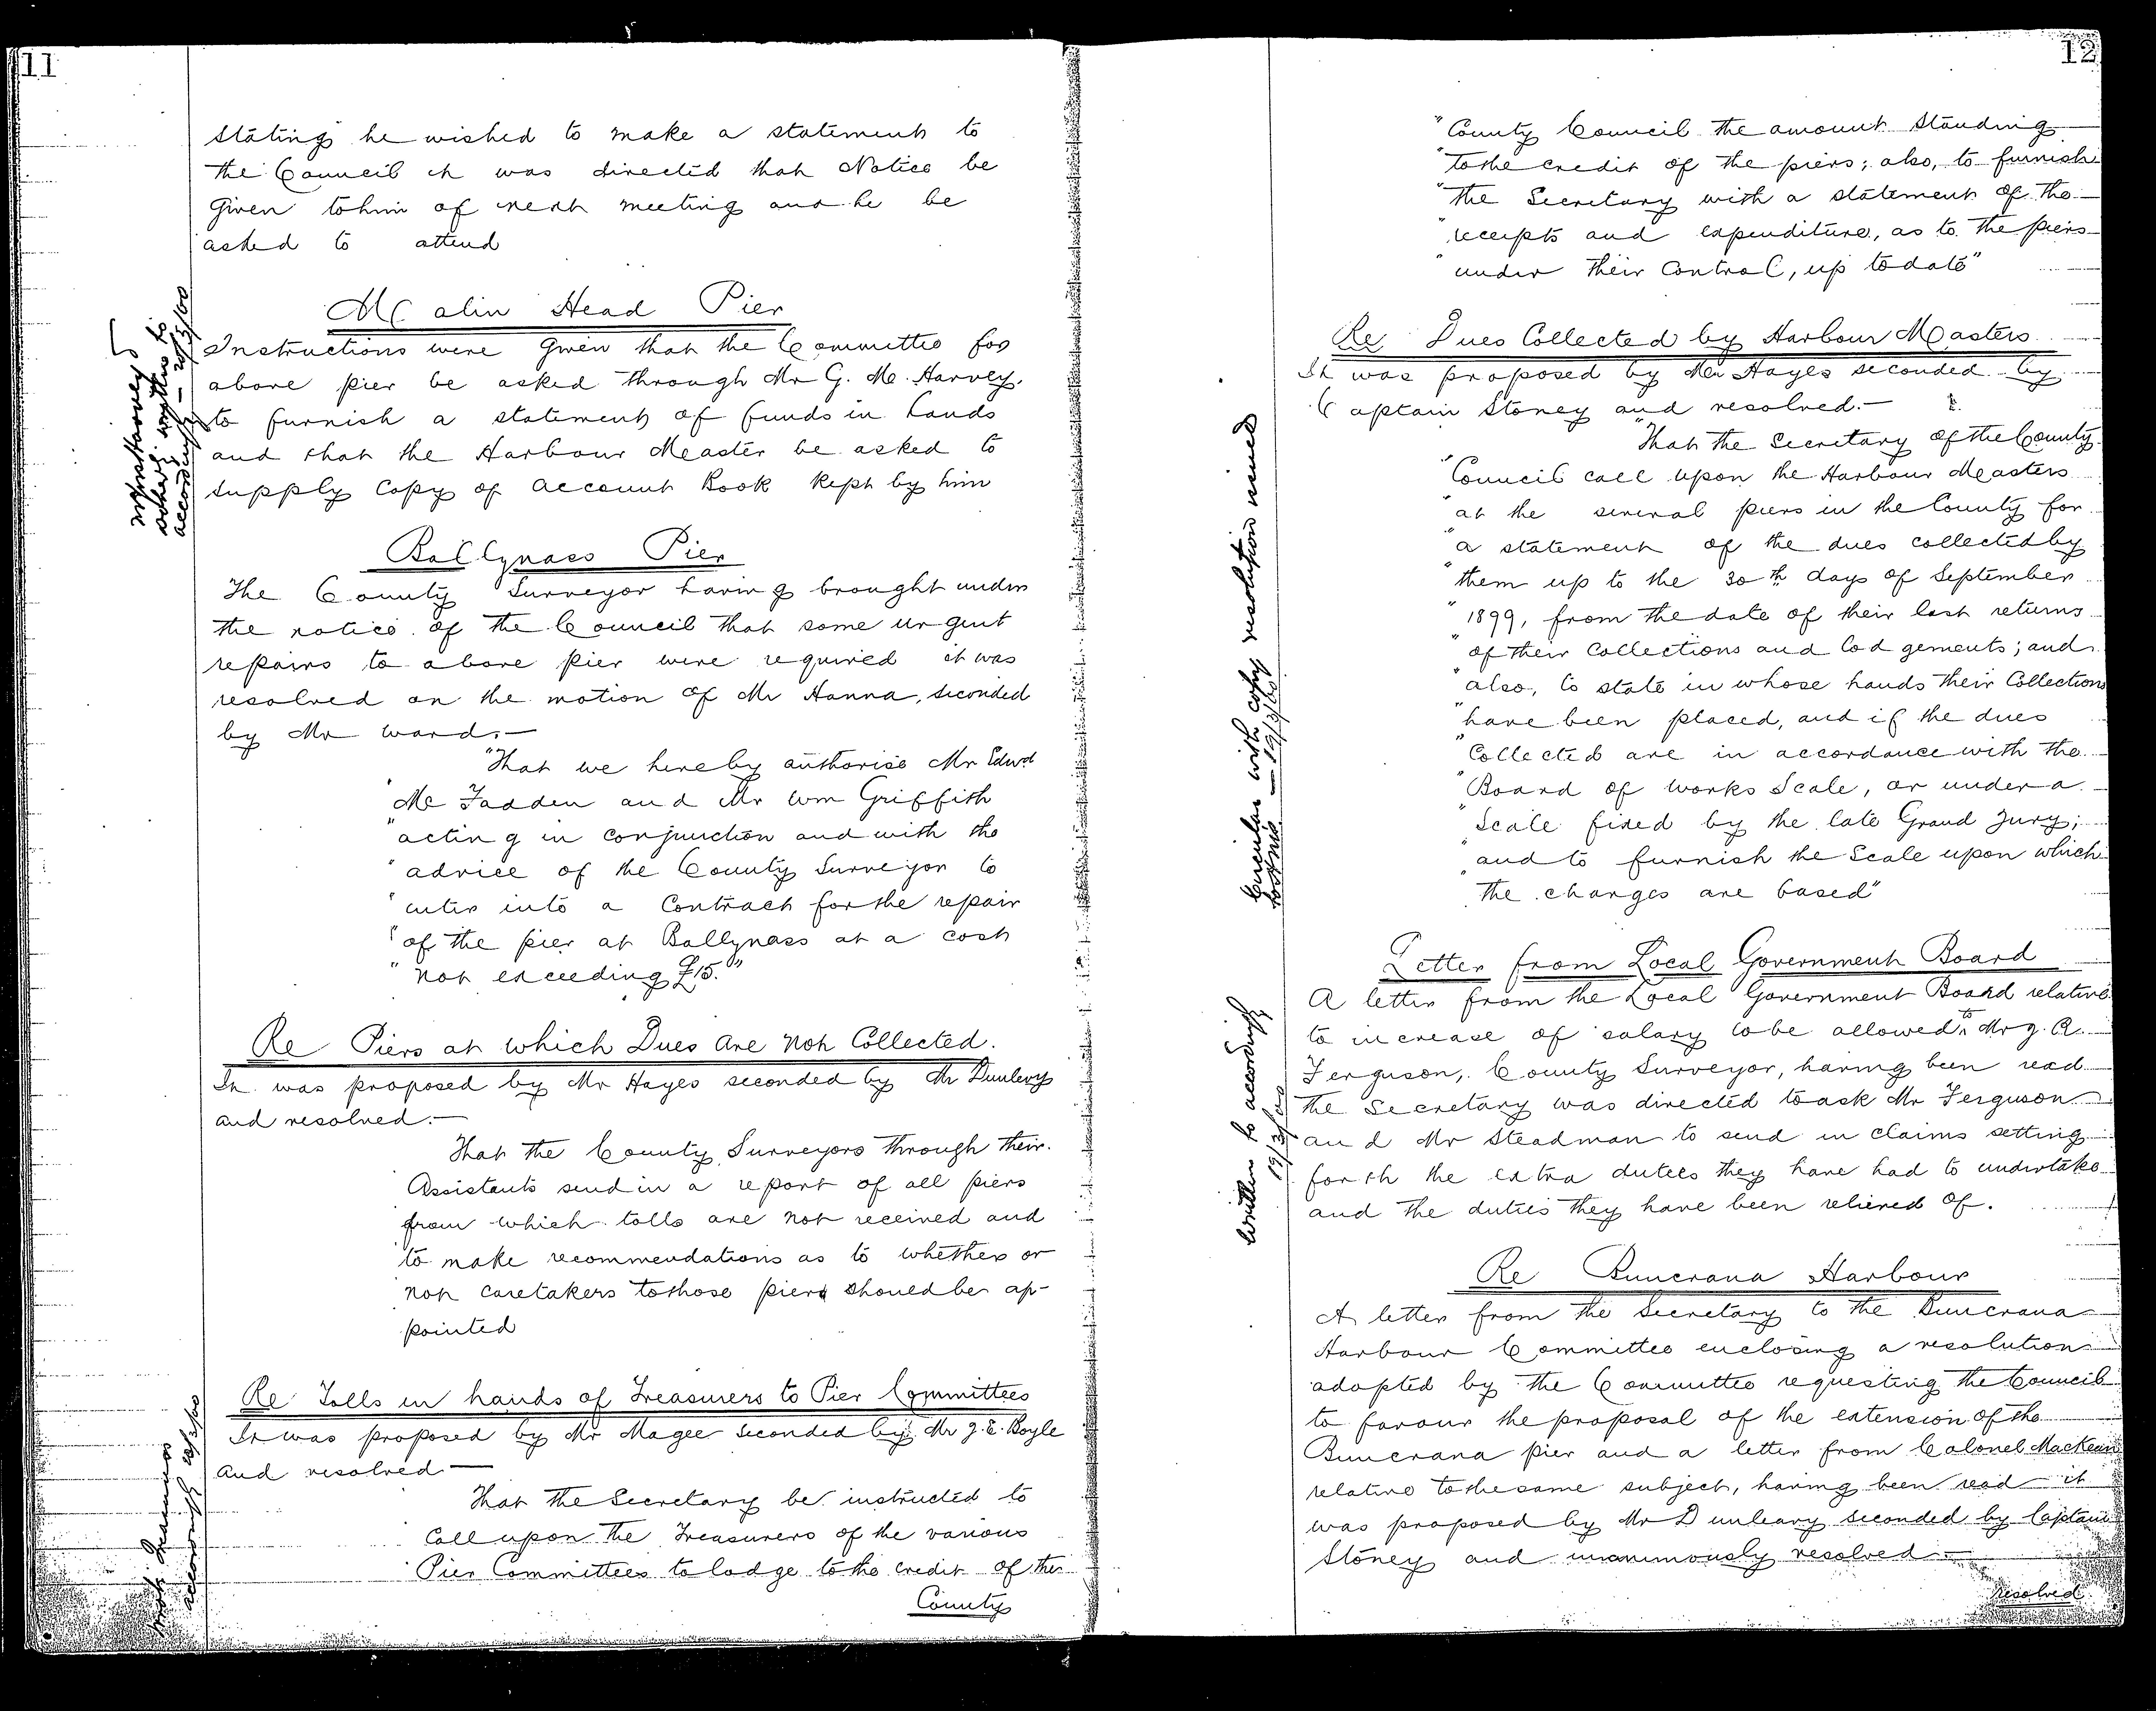 11
stating he wished to make a statement to
the Council it was directed that Notice be
Given to him of next meeting and he be
asked to attend
Malin Head Pier
Instructions were Given that the Committee for
above pier be asked through Mr G. M. Harvey
to furnish a statement of funds in hands
and that the Harbour Master be asked to
supply Copy of Account Book Kept by him
accordingly — 20/3/00
Ballyness Pier
The County Surveyor having brought under
the notice of the Council that some urgent
repairs to above pier were required it was
resolved on the motion of Mr Hanna, seconded
by Mr Ward.—
"That we hereby authorise Mr Edwd
"Mc Fadden and Mr Wm Griffith
"acting in conjunction and with the
"advice of the County Surveyor to
"enter into a Contract for the repair
"of the pier at Ballyness at a cost
"not exceeding £15."
Re Piers at which Dues are not Collected.
It was proposed by Mr Hayes seconded by Mr Dunlevy
and resolved.—
That the County Surveyors through their
Assistants send in a report of all piers
from which tolls are not received and
to make recommendations as to whether or
not caretakers to those piers should be ap-
pointed
Re Tolls in hands of Treasurers to Pier Committees
It was proposed by Mr Magee seconded by Mr J. E. Boyle
and resolved —
That the Secretary be instructed to
Call upon the Treasurers of the various
Pier Committees to lodge to the credit of the
County
Wrote Treasurers
accordingly 20/3/00
12
"County Council the amount standing
"to the credit of the piers; also, to furnish
"the Secretary with a statement of the
"receipts and expenditure, as to the piers
"under their control, up to date"
Re Dues Collected by Harbour Masters
It was proposed by Mr Hayes seconded by
Captain Stoney and resolved.—
"That the Secretary of the County
"Council call upon the Harbour Masters
"at the several piers in the County for
"a statement of the dues collected by
"them up to the 30th day of September
"1899, from the date of their last returns
"of their Collections and lodgements; and
"also, to state in whose hands their Collections
"have been placed, and if the dues
"Collected are in accordance with the
"Board of Works Scale, or under a
"Scale fixed by the late Grand Jury;
"and to furnish the Scale upon which
the charges are based"
Circular with copy resolution issued
— 19/3/00
Letter from Local Government Board
A letter from the Local Government Board relative
to increase of salary to be allowed to Mr J. A.
Ferguson, County Surveyor, having been read
the Secretary was directed to ask Mr Ferguson
and Mr Steadman to send in claims setting
forth the extra duties they have had to undertake
and the duties they have been relieved of.
Written to accordingly
19/3/00
Re Buncrana Harbour
A letter from the Secretary to the Buncrana
Harbour Committee enclosing a resolution
adopted by the Committee requesting the Council
to favour the proposal of the extension of the
Buncrana pier and a letter from Colonel MacKean
relative to the same subject, having been read it
was proposed by Mr Dunleavy seconded by Captain
Stoney and unanimously resolved —
Resolved